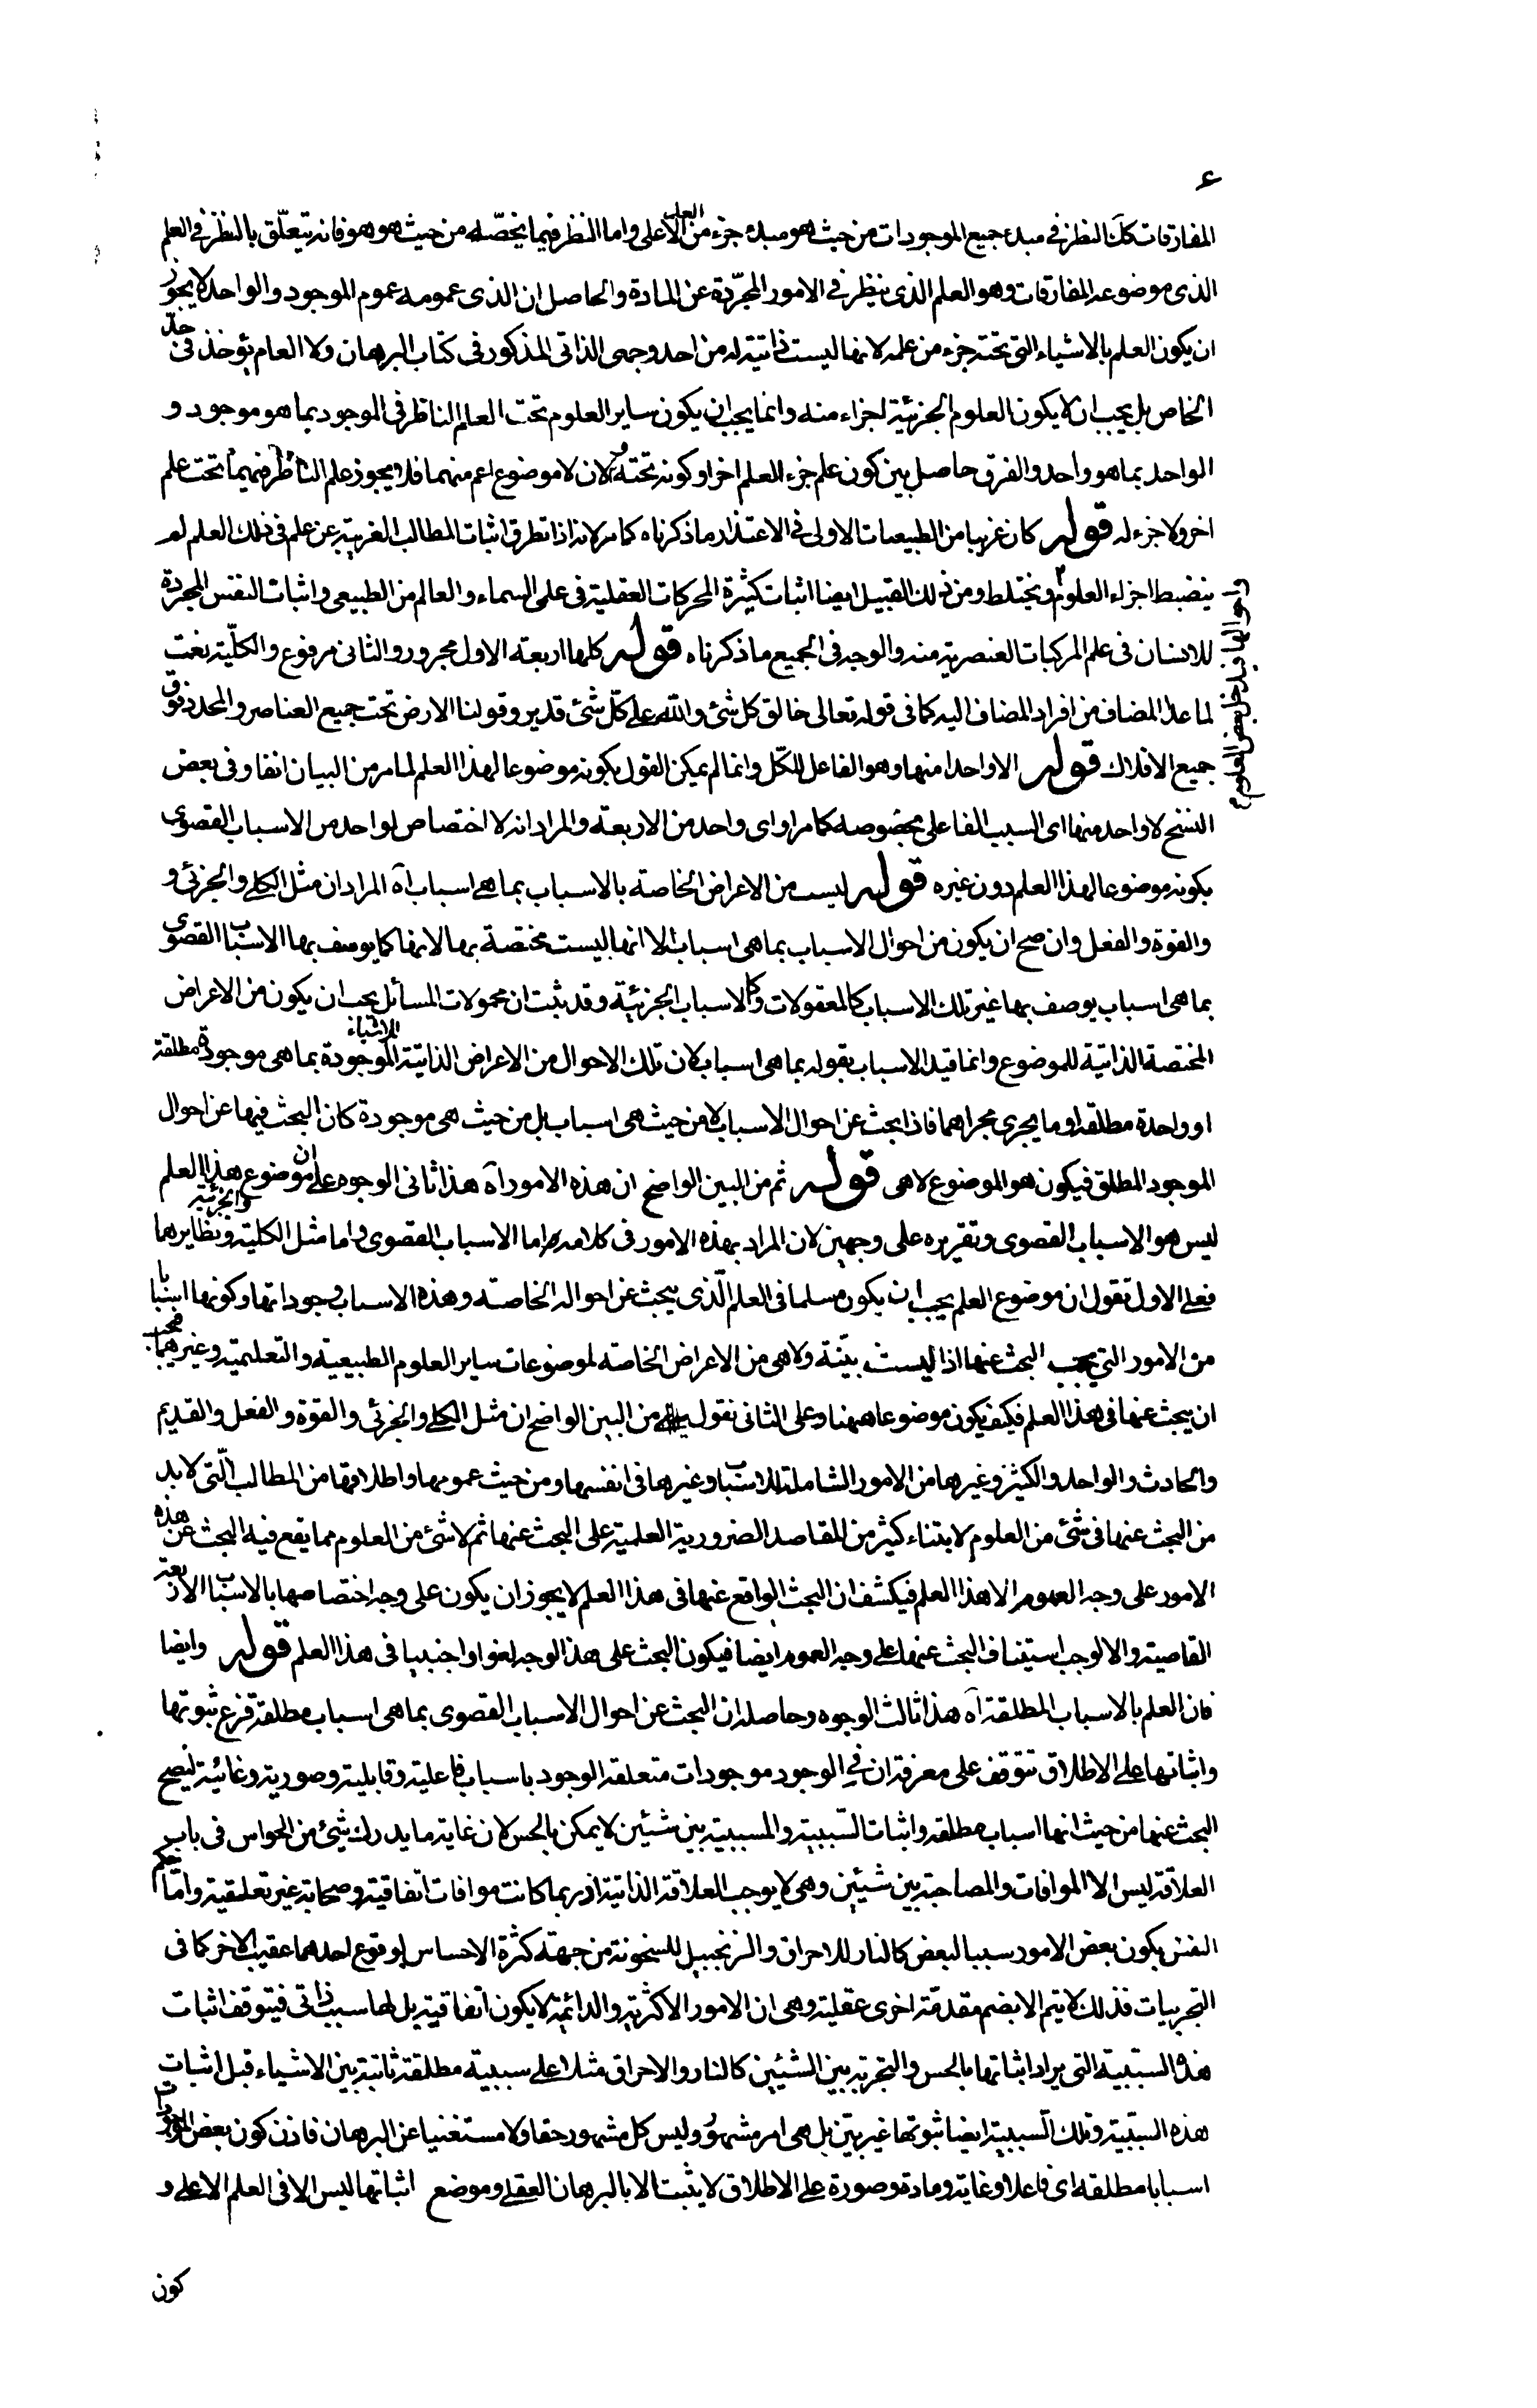 ع
المفارقات كك النظر في مبدء جميع الموجودات من حيث هو مبدء جزء من العلم الاعلى واما النظر فيما يخصّه من حيث هو هو فانه يتعلّق بالنظر في العلم
الذى موضوعه المفارقات وهو العلم الذى ينظر في الامور المجرّدة عن المادة والحاصل ان الذى عمومه عموم الموجود والواحد لا يجوز
ان يكون العلم بالاشياء التى تحته جزء من علمه لانها ليست ذاتية له من احد وجهى الذاتى المذكور فى كتاب البرهان ولا العام يؤخذ فى حدّ
الخاص بل يجب ان لا يكون العلوم الجزئية اجزاء منه وانما يجب ان يكون ساير العلوم تحت العلم الناظر فى الموجود بما هو موجود و
الواحد بما هو واحد والفرق حاصل بين كون علم جزء العلم اخر او كونه تحته ولان لا موضوع اعم منهما فلا يجوز علم الناظر فيهما تحت علم
اخر ولا جزء له قوله كان غريبا من الطبيعيات الاولى فى الاعتذار ما ذكرناه كما مر لانه اذا تطرق اثبات المطالب الغريبة عن علم فى ذلك العلم لم
ينضبط اجزاء العلوم ويختلط ومن ذلك القبيل ايضا اثبات كثرة المحركات العقلية فى علمى السماء والعالم من الطبيعى واثبات النفس المجردة
واحوالها فيدخل بعض العلوم
للانسان فى علم المركبات العنصرية منه والوجه فى الجميع ما ذكرناه قوله كلها اربعة الاول مجرور والثانى مرفوع والكلّية نعت
لما عدا المضاف من افراد المضاف اليه كما فى قوله تعالى خالق كل شئ والله على كلّ شئ قدير وقولنا الارض تحت جميع العناصر والمحدد فوق
جميع الافلاك قوله الا واحدا منها وهو الفاعل للكّل وانما لم يمكن القول بكونه موضوعا لهذا العلم لما مر من البيان انفا وفى بعض
النسخ لا واحد منها اى السبب الفاعلى بخصوصه كما مر او اى واحد من الاربعة والمراد انه لا اختصاص لواحد من الاسباب القصوى
بكونه موضوعا لهذا العلم دون غيره قوله ليست من الاعراض الخاصة بالاسباب بما هى اسباب اه المراد ان مثل الكلى والجزئى و
والقوة والفعل وان صح ان يكون من احوال الاسباب بما هى اسباب الا انها ليست مختصة بها لانها كما يوصف بها الاسباب القصوى
بما هى اسباب يوصف بها غير تلك الاسباب كالمعقولات وكالاسباب الجزئية وقد ثبت ان محمولات المسائل يجب ان يكون من الاعراض
المختصة الذاتية للموضوع وانما قيد الاسباب بقوله بما هى اسباب لان تلك الاحوال من الاعراض الذاتية للاشياء الموجودة بما هى موجودة مطلقة
او واحدة مطلقة او ما يجرى مجراهما فاذا بحث عن احوال الاسباب لا من حيث هى اسباب بل من حيث هى موجودة كان البحث فيها عن احوال
الموجود المطلق فيكون هو الموضوع لا هى قوله ثم من البين الواضح ان هذه الامور آه هذا ثانى الوجوه على ان موضوع هذا العلم
ليس هو الاسباب القصوى وتقريره على وجهين لان المراد بهذه الامور فى كلامه اما الاسباب القصوى او اما مثل الكلية والجزئية ونظايرهما
فعلى الاول نقول ان موضوع العلم يجب ان يكون مسلما فى العلم الّذى يبحث عن احواله الخاصة وهذه الاسباب وجوداتها وكونها اسبابا
من الامور التى يجب البحث عنها اذ ليست بيّنة ولا هى من الاعراض الخاصة لموضوعات ساير العلوم الطبيعية والتعليمية وغيرهما فيجب
ان يبحث عنها فى هذا العلم فكيف يكون موضوعا ههنا وعلى الثانى نقول من البين الواضح ان مثل الكلى والجزئى والقوة والفعل والقديم
والحادث والواحد والكثير وغيرها من الامور الشاملة للاسباب وغيرها فى انفسها ومن حيث عمومها واطلاقها من المطالب الّتى لا بد
من البحث عنها فى شئ من العلوم لابتناء كثير من المقاصد الضرورية العلمية على البحث عنها ثم لا شئ من العلوم مما يقع فيه البحث عن هذه
الامور على وجه العموم الا هذا العلم فيكشف ان البحث الواقع عنها فى هذا العلم لا يجوز ان يكون على وجه اختصاصها بالاسباب الاربعة
القاصية والا لوجب استيناف البحث عنها على وجه العموم ايضا فيكون البحث على هذا الوجه لغوا او اجنبيا فى هذا العلم قوله وايضا
فان العلم بالاسباب المطلقة آه هذا ثالث الوجوه وحاصله ان البحث عن احوال الاسباب القصوى بما هى اسباب مطلقة فرع ثبوتها
واثباتها على الاطلاق تتوقف على معرفة ان فى الوجود موجودات متعلقة الوجود باسباب فاعلية وقابلية وصورية وغائية ليصح
البحث عنها من حيث انها اسباب مطلقة واثبات السّببية والمسببية بين شيئين لا يمكن بالحس لان غاية ما يدرك شئ من الحواس فى باب
العلاقة ليس الا الموافات والمصاحبة بين شيئين وهى لا يوجب العلاقة الذاتية اذ ربما كانت موافات اتفاقية وصحابة غير تعلقية واما حكم
النفس بكون بعض الامور سببا لبعض كالنار للاحراق والزنجبيل للسخونة من جهة كثرة الاحساس لوقوع احدهما عقيب الاخر كما فى
التجربيات فذلك لا يتم الا بضم مقدمة اخرى عقلية وهى ان الامور الاكثرية والدائمة لا يكون اتفاقية بل لها سبب ذاتى فيتوقف اثبات
هذه السّببية التى يراد اثباتها بالحس والتجربة بين الشيئين كالنار والاحراق مثلا على سببية مطلقة ثابتة بين الاشياء قبل اثبات
هذه السّببية وتلك السّببية ايضا ثبوتها غير بيّن بل هى امر مشهور وليس كل مشهور حقا ولا مستغنيا عن البرهان فاذن كون بعض الموجودات
اسبابا مطلقة اى فاعلا وغاية ومادة وصورة على الاطلاق لا يثبت الا بالبرهان العقلى وموضع اثباتها ليس الا فى العلم الاعلى و
كون